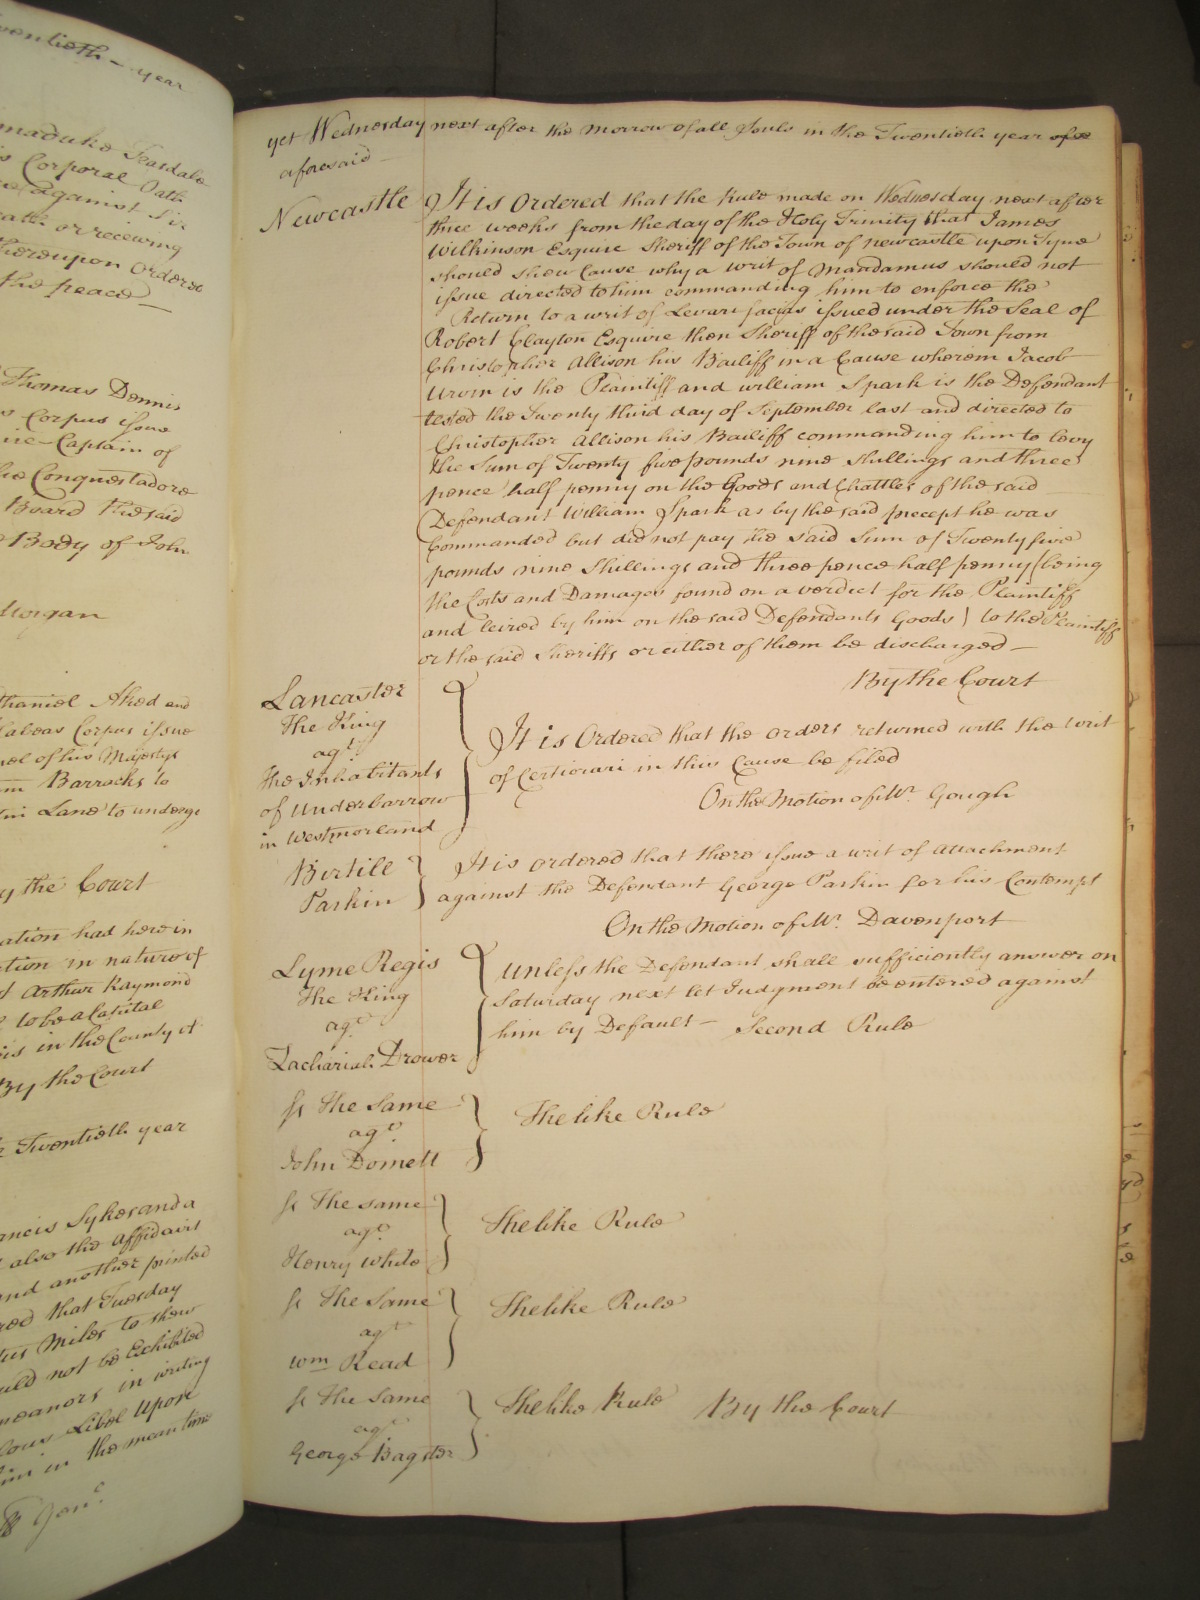 wentieth - year
maduke Teasdale
s Corporal Oath
against Sir
eath or receiving
thereupon Ordered
the peace
Thomas Dennis
s Corpus issue
Captain of
he Conquestadore
Board the said
Body of John
Morgan
thaniel Aked and
Habeas Corpus issue
nel of his Majestys
m Barracks to
Lane to undergo
y the Court
ation had here in
tion in nature of
Arthur Raymond
to be a Capital
is in the County of
By the Court
Twentieth year
ancis Sykes and a
also the Affidavit
and another printed
red that Tuesday
tus Miles to shew
uld not be Exhibited
meanors in writing
lous Libel Upon
him in the mean time
yet Wednesday next after the morrow of all Souls in the Twentieth year
aforesaid
Newcastle
It is Ordered that the Rule made on Wednesday next after
three weeks from the day of the Holy Trinity that James
Wilkinson Esquire Sheriff of the Town of newcastle upon Tyne
should shew Cause why a writ of Mandamus should not
issue directed to him commanding him to enforce the
Return to a writ of Levari facias issued under the Seal of
Robert Clayton Esquire then Sheriff of the said Town from
Christopher Allison his Bailiff in a Cause wherein Jacob
Urwin is the Plaintiff and william Spark is the Defendant
tested the Twenty third day of September last and directed to
Christopher Allison his Bailiff commanding him to levy
the Sum of Twenty five pounds nine shillings and three
pence half penny on the Goods and Chattles of the said
Defendant William Spark as by the said precept he was
Commanded but did not pay the said Sum of Twenty five
pounds nine Shillings and three pence half penny (being
the Costs and Damages found on a verdict for the Plaintiff
and leived by him on the said Defendants Goods) to the Plaintiff
or the said Sheriffs or either of them be discharged
By the Court
Lancaster
The King
agt
The Inhabitants
of Underbarrow
in Westmorland
It is Ordered that the orders returned with the writ
of Certiorari in this Cause be filed
On the Motion of Mr. Gough
Birtill
Parkin
It is ordered that there issue a writ of Attachment
against the Defendant George Parkin for his Contempt
On the Motion of Mr. Davenport
Lyme Regis
The King
agt
Zachariah Drower
Unless the Defendant shall sufficiently answer on
Saturday next let Judgment be entered against
him by Default - Second Rule
The Same
agt
John Domett
The like Rule
The same
agt
Henry White
The like Rule
The Same
agt
Wm Read
The like Rule
The Same
agt
George Bagster
The like Rule By the Court